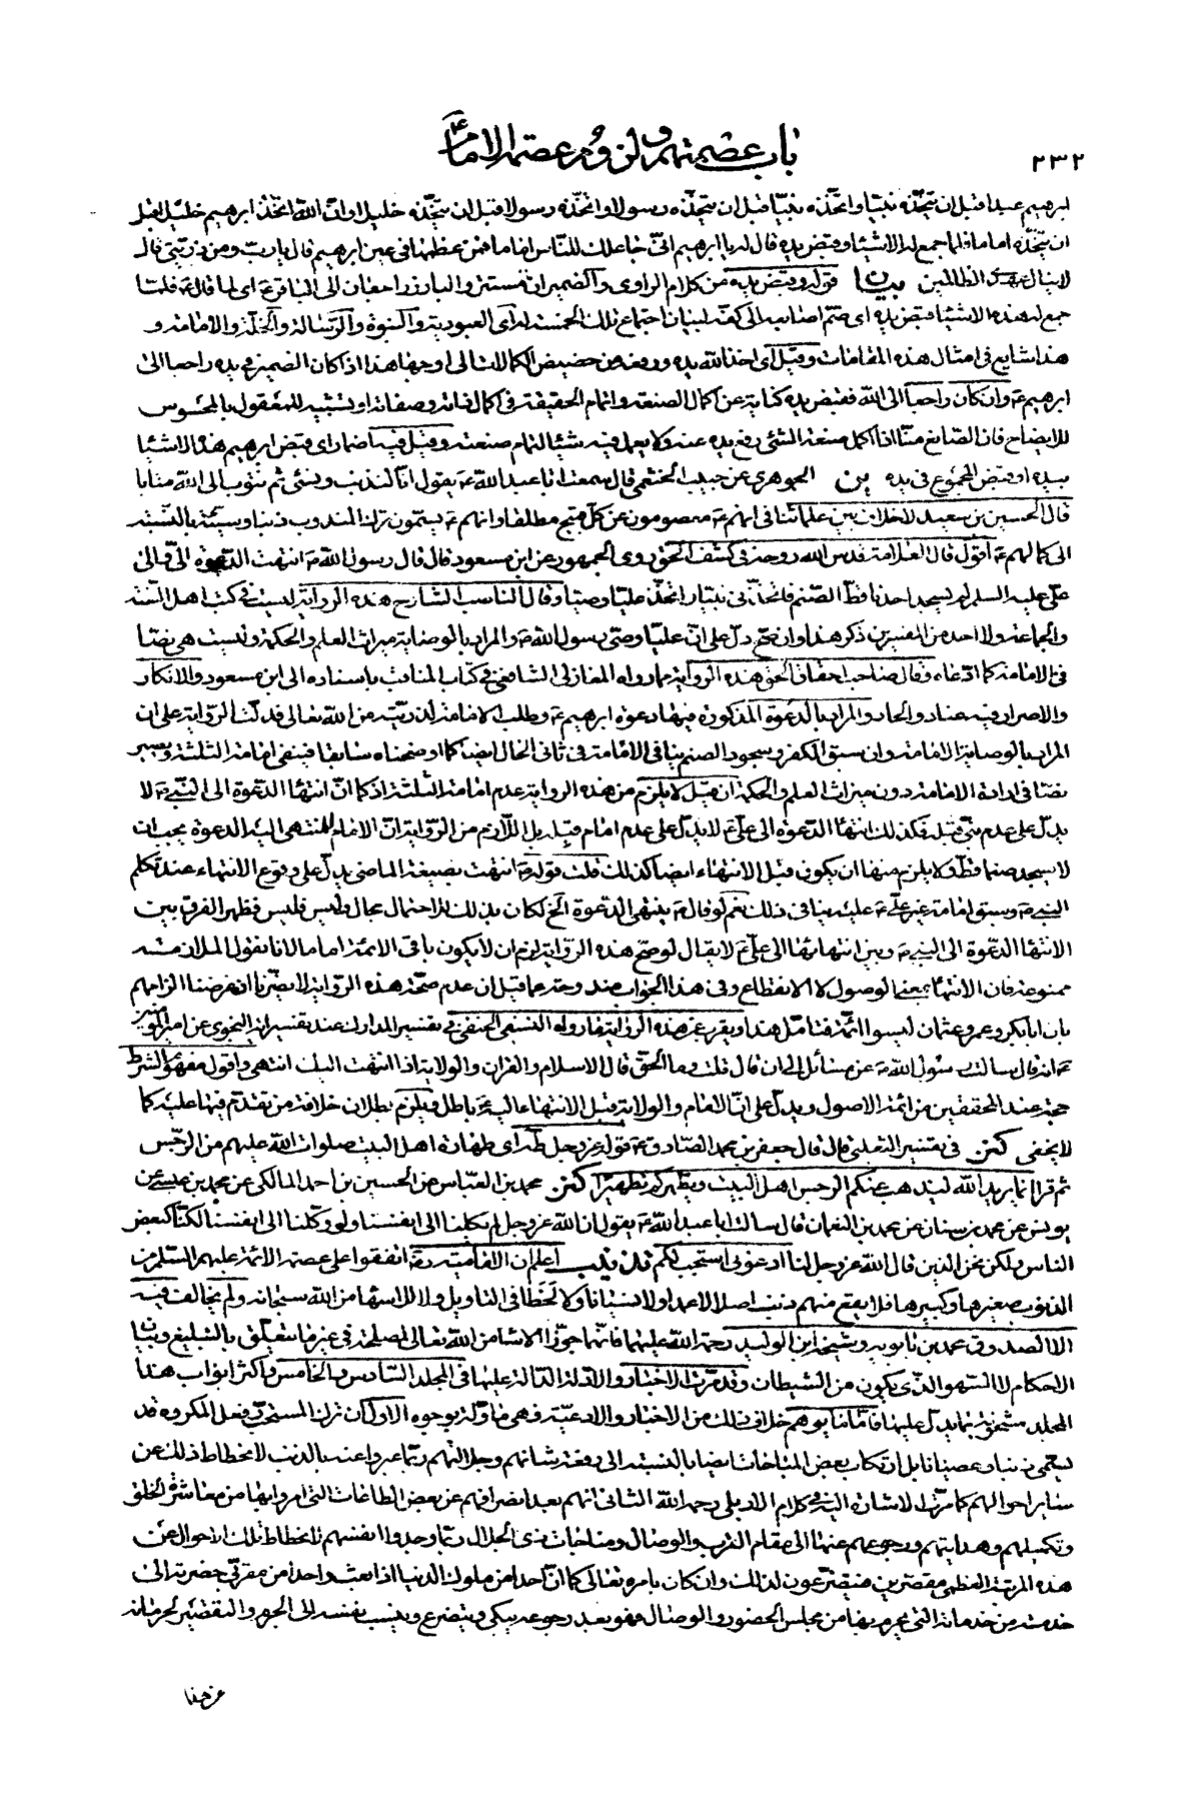 باب عصمتهم و لزوم عصمة الامام ع
٢٣٢
ابرهيم عبدا قبل ان يتخذه نبيا واتخذه نبيا قبل ان يتخذه رسولا واتخذه رسولا قبل ان يتخذه خليلا وان الله اتخذ ابرهيم خليلا قبل
ان يتخذه اماما فلما جمع له الاشياء وقبض يده قال له يا ابرهيم انى جاعلك للناس اماما فمن عظمها فى عين ابرهيم قال يا رب ومن ذريتى قال
لا ينال عهدى الظالمين بيان قوله وقبض يده من كلام الراوى والضميران المستتر والبارز راجعان الى الباقر ع اى لما قال ع فلما
جمع له هذه الاشياء قبض يده اى ضم اصابعه الى كفه لبيان اجتماع تلك الخمسة له اى العبودية والنبوة والرسالة والخلة والامامة و
هذا شايع فى امثال هذه المقامات وقيل اى اخذ الله يده ورفعه من حضيض الكمالات الى اوجها هذا اذا كان الضمير فى يده راجعا الى
ابرهيم ع وان كان راجعا الى الله فقبض يده كناية عن اكمال الصنعة واتمام الحقيقة فى اكمال ذاته وصفاته او تشبيه للمعقول بالمحسوس
للايضاح فان الصانع منا اذا اكمل صنعة الشئ رفع يده عنه ولا يعمل فيه شيئا لتمام صنعته وقيل فيه اضمار اى قبض ابرهيم هذه الاشياء
بيده او قبض المجموع فى يده ين الجوهرى عن حبيب الخثعمى قال سمعت ابا عبد الله ع يقول انا لنذنب ونسئ ثم نتوب الى الله متابا
قال الحسين بن سعيد لا خلاف بين علمائنا فى انهم ع معصومون عن كل قبيح مطلقا وانهم ع يسمون ترك المندوب ذنبا وسيئة بالنسبة
الى كمالهم ع اقول قال العلامة قدس الله روحه فى كشف الحق روى الجمهور عن ابن مسعود قال قال رسول الله ص انتهت الدعوة الى والى
على عليه السلم لم يسجد احدنا قط لصنم فاتخذنى نبيا واتخذ عليا وصيا وقال الناسب الشارح هذه الرواية ليست فى كتب اهل السنة
والجماعة ولا احد من المفسرين ذكر هذا وان صح دل على ان عليا وصى رسول الله ص والمراد بالوصاية ميراث العلم والحكمة وليست هى نصا
فى الامامة كما ادعاه وقال صاحب احقاق الحق هذه الرواية مما رواه المغازلى الشافعى فى كتاب المناقب باسناده الى ابن مسعود والانكار
والاصرار فيه عناد والحاد والمراد بالدعوة المذكورة فيها دعوة ابرهيم ع وطلب الامامة لذريته من الله تعالى فدلت الرواية على ان
المراد بالوصاية الامامة وان سبق الكفر وسجود الصنم ينافى الامامة فى ثانى الحال ايضا كما اوضحناه سابقا فينفى امامة الثلثة ويصير
نصا فى ارادة الامامة دون ميراث العلم والحكمة ان قيل لا يلزم من هذه الرواية عدم امامة الثلثة اذ كما ان انتهاء الدعوة الى النبى ص لا
يدل على عدم نبى قبله فكذلك انتهاء الدعوة الى على ع لا يدل على عدم امام قبله بل اللازم من الرواية ان الامام المنتهى اليه الدعوة يجب ان
لا يسجد صنما قط ولا يلزم منها ان يكون قبل الانتهاء ايضا كذلك قلت قوله ص انتهت بصيغة الماضى يدل على وقوع الانتهاء عند تكلم
النبى ص وسبق امامة غير على ع عليه ينافى ذلك نعم لو قال ص ينتهى الدعوة الخ لكان بذلك الاحتمال مجال وليس فليس فظهر الفرق بين
الانتهاء الدعوة الى النبى ص وبين انتهائها الى على ع لا يقال لو صح هذه الرواية لزم ان لا يكون باقى الائمة اماما لانا نقول الملازمة
ممنوعة فان الانتهاء بمعنى الوصول لا الانقطاع وفى هذا الجواب مندوحة عما قيل ان عدم صحة هذه الرواية لا يضرنا اذ غرضنا الزامهم
بان ابا بكر وعمر وعثمان ليسوا ائمة فتامل هذا ويقرب عن هذه الرواية ما رواه النسفى الحنفى فى تفسير المدارك عند تفسير اية النجوى عن امير المؤمنين
ع انه قال سالت رسول الله ص عن مسائل الى ان قال قلت وما الحق قال الاسلام والقران والولاية اذا انتهت اليك انتهى واقول مفهوم الشرط
حجة عند المحققين من ائمة الاصول ويدل على ان الامام والولاية قبل الانتهاء اليه ع باطل فيلزم بطلان خلافة من تقدم فيها عليه كما
لا يخفى كنز فى تفسير الثعلبى قال قال جعفر بن محمد الصادق ع قوله عز وجل طه اى طهارة اهل البيت صلوات الله عليهم من الرجس
ثم قرا انما يريد الله ليذهب عنكم الرجس اهل البيت ويطهركم تطهيرا كنز محمد بن العباس عن الحسين بن احمد المالكى عن محمد بن عيسى عن
يونس عن محمد بن سنان عن محمد بن النعمان قال سالت ابا عبد الله ع يقول ان الله عز وجل لم يكلنا الى انفسنا ولو وكلنا الى انفسنا لكنا كبعض
الناس ولكن نحن الذين قال الله عز وجل لنا ادعونى استجب لكم تذنيب اعلم ان الامامية رض اتفقوا على عصمة الائمة عليهم السلم من
الذنوب صغيرها وكبيرها فلا يقع منهم ذنب اصلا لا عمدا ولا نسيانا ولا لخطا فى التاويل ولا للاسهاء من الله سبحانه ولم يخالف فيه
الا الصدوق محمد بن بابويه وشيخه ابن الوليد رحمة الله عليهما فانهما جوزا الاسهاء من الله تعالى لمصلحة فى غير ما يتعلق بالتبليغ وبيان
الاحكام لا السهو الذى يكون من الشيطان وقد مرت الاخبار والادلة الدالة عليها فى المجلد السادس والخامس واكثر ابواب هذا
المجلد مشحونة بما يدل عليها فاما ما يوهم خلاف ذلك من الاخبار والادعية فهى ماولة بوجوه الاول ان ترك المستحب وفعل المكروه قد
يسمى ذنبا وعصيانا بل ارتكاب بعض المباحات ايضا بالنسبة الى رفعة شانهم وجلالتهم ربما عبروا عنه بالذنب لانحطاط ذلك عن
سائر احوالهم كما مرت الاشارة اليه فى كلام الاربلى رحمه الله الثانى انهم بعد انصرافهم عن بعض الطاعات التى امروا بها من معاشرة الخلق
وتكميلهم وهدايتهم ورجوعهم عنها الى مقام القرب والوصال ومناجات ذى الجلال ربما وجدوا انفسهم لانحطاط تلك الاحوال عن
هذه المرتبة العظمى مقصرين فيتضرعون لذلك وان كان بامره تعالى كما ان احدا من ملوك الدنيا اذا بعث واحدا من مقربى حضرته الى
خدمة من خدماته التى يحرم بها من مجلس الحضور والوصال فهو بعد رجوعه يبكى ويتضرع وينسب نفسه الى الجرم والتقصير لحرمانه
عن هذا